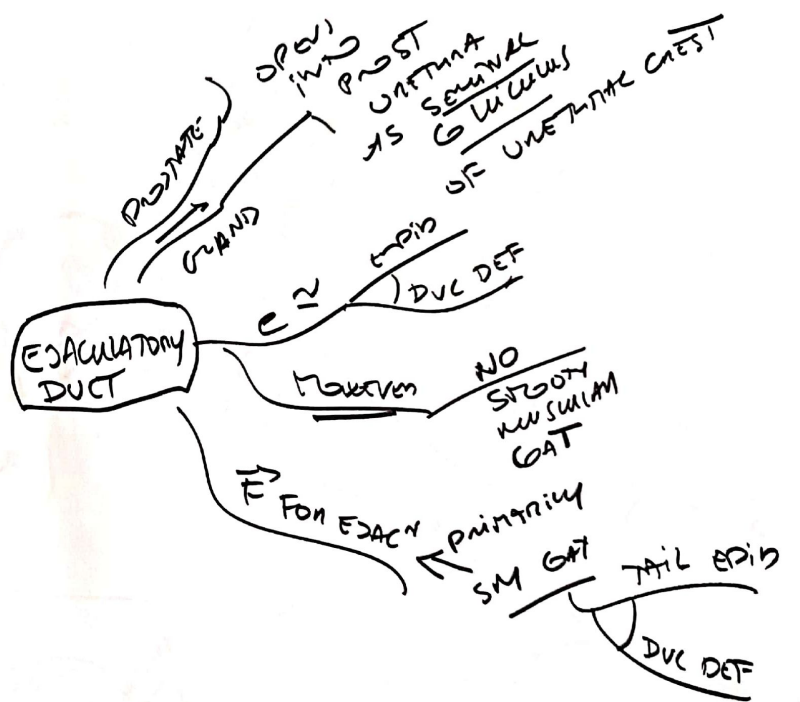 EJACULATORY
DUCT
PROSTATE
GLAND
OPENS
INTO
PROST
URETHRA
AS SEMINAL
COLLICULUS
OF URETHRAL CREST
e ~
EPID
DUC DEF
HOWEVER
NO
SMOOTH
MUSCULAR
COAT
F FOR EJACN
PRIMARILY
SM COAT
TAIL EPID
DUC DEF